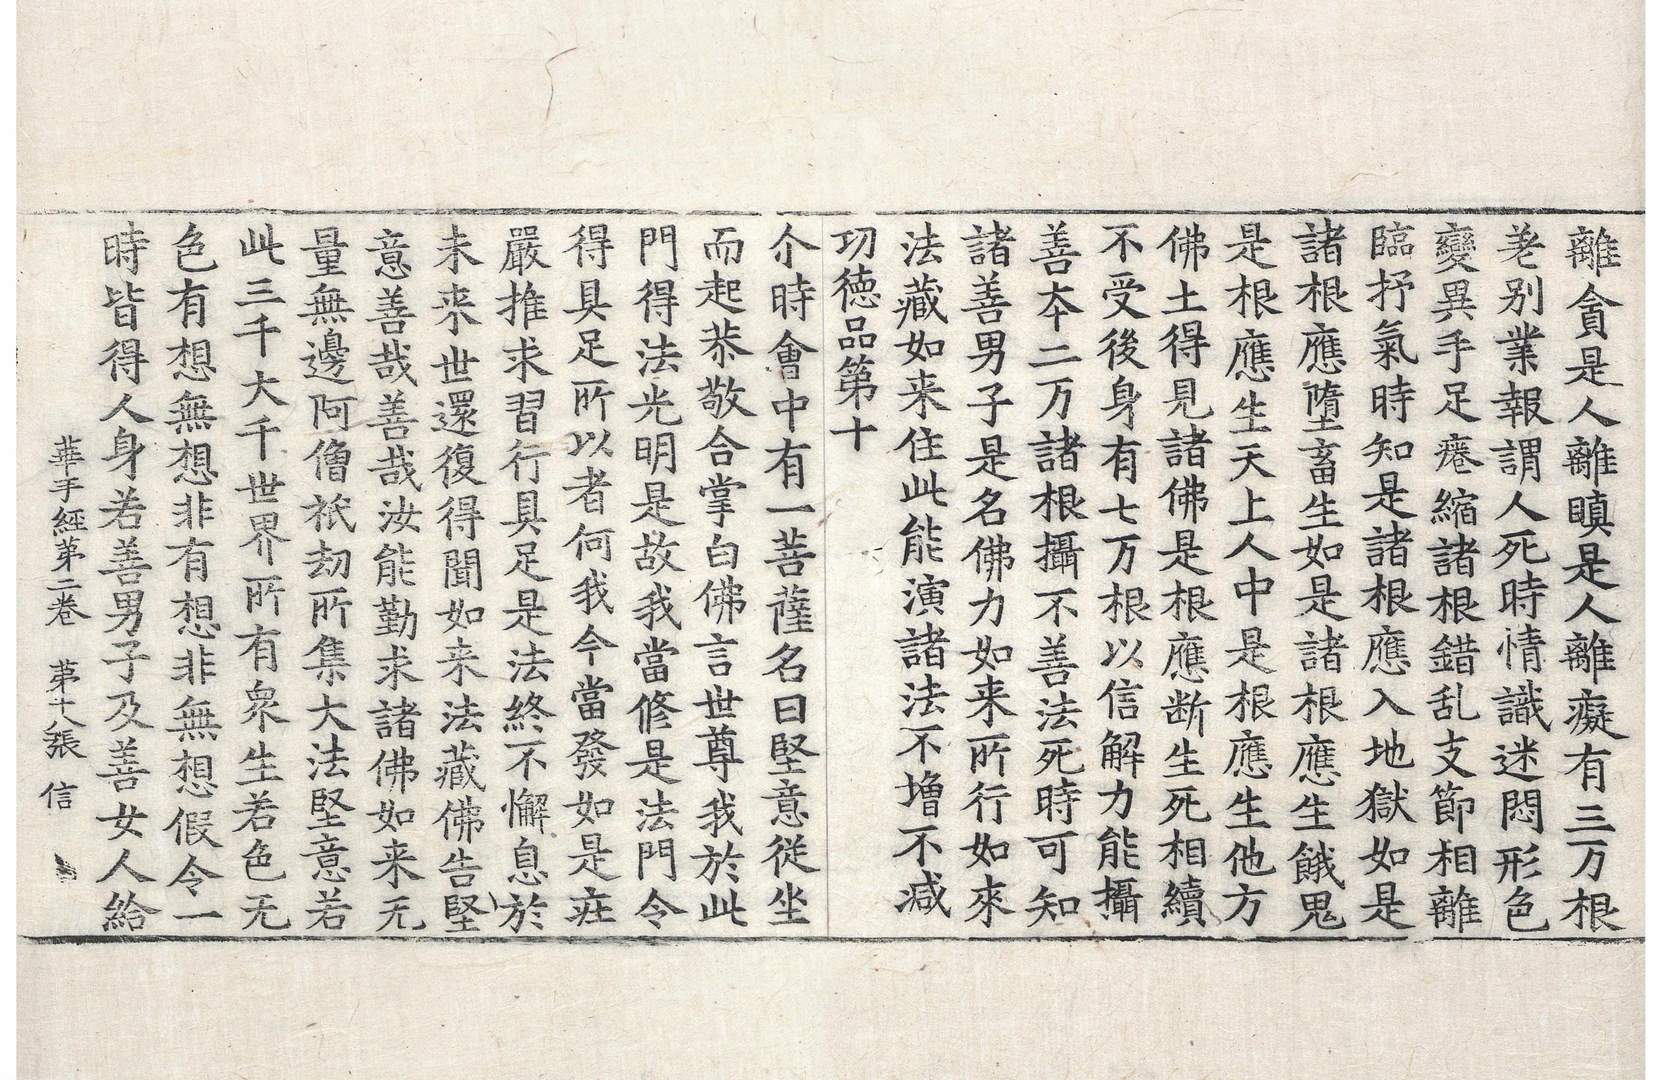 離貪是人離瞋是人離癡有三万根
差别業報謂人死時情識迷悶形色
變異手足痿縮諸根錯乱支節相離
臨抒氣時知是諸根應入地獄如是
諸根應墮畜生如是諸根應生餓鬼
是根應生天上人中是根應生他方
佛土得見諸佛是根應断生死相續
不受後身有七万根以信解力能攝
善夲二万諸根攝不善法死時可知
諸善男子是名佛力如来所行如來
法藏如来住此能演諸法不增不减
功德品第十
尒時會中有一菩薩名曰堅意從坐
而起恭敬合掌白佛言世尊我於此
門得法光明是故我當修是法門令
得具足所以者何我今當發如是疰
嚴推求習行具足是法終不懈息於
未来世還復得聞如来法藏佛告堅
意善哉善哉汝能勤求諸佛如来无
量無邊阿僧祇劫所集大法堅意若
此三千大千世界所有衆生若色无
色有想無想非有想非無想假令一
時皆得人身若善男子及善女人給
華手經苐二卷 苐十八張 信